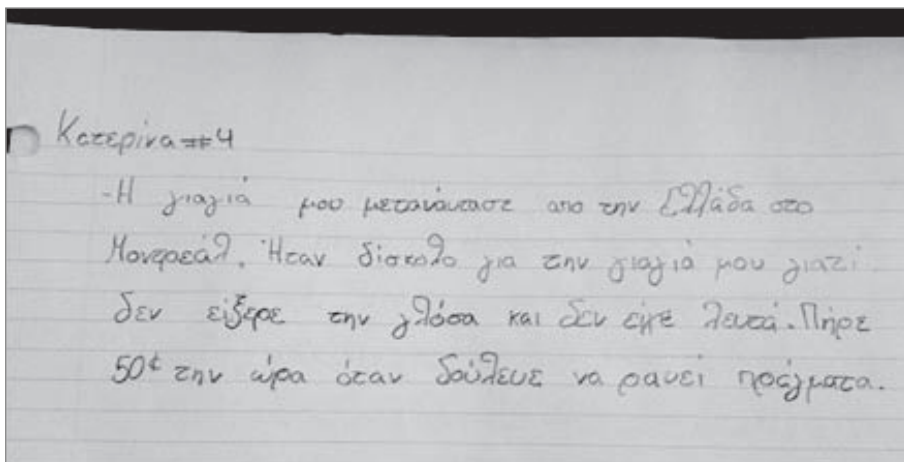 Κατερίνα #4
-Η γιαγιά μου μετανάταστε απο την Ελλάδα στο
Μοντρεάλ. Ήταν δίσκολο για την γιαγιά μου γιατί
δεν είξερε την γλόσα και δεν είχε λευτά. Πήρε
50¢ την ώρα όταν δούλευε να ραυεί πράγματα.